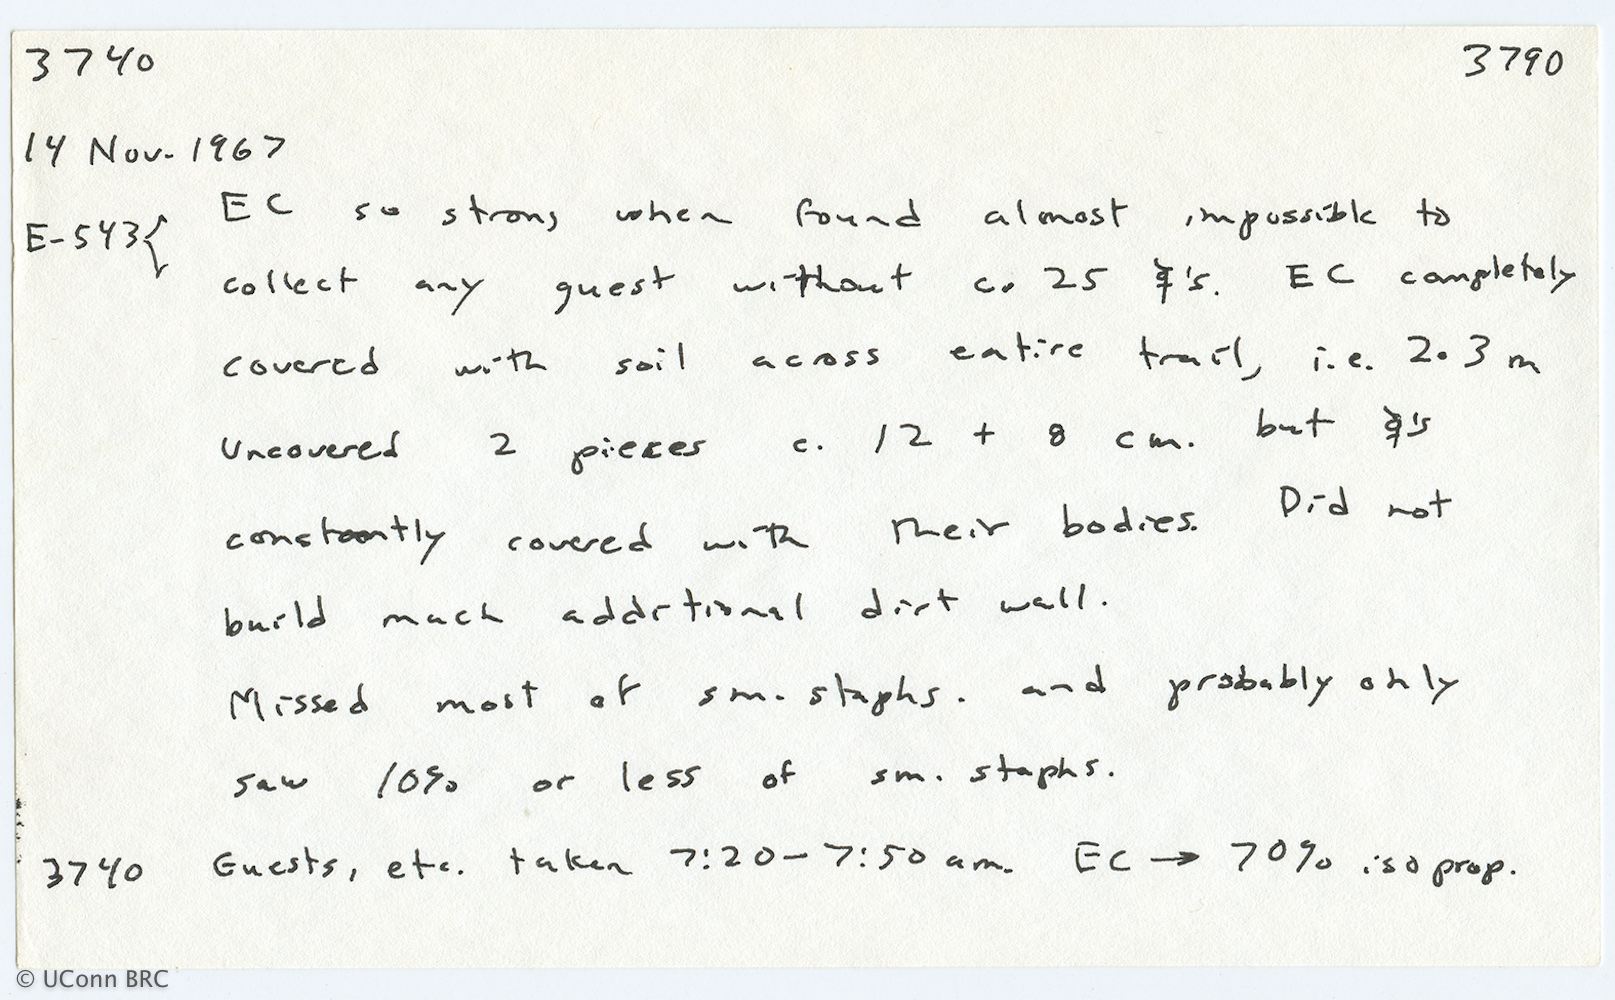 3740 3790
14 Nov. 1967
E-543{ EC so strong when found almost impossible to
collect any guest without c. 25 ☿'s. EC completely
covered with soil across entire trail, i.e. 2.3 m
Uncovered 2 pieces c. 12 + 8 cm. but ☿'s
constantly covered with their bodies. Did not
build much additional dirt wall.
Missed most of sm. staphs. and probably only
saw 10% or less of sm. staphs.
3740 Guests, etc. taken 7:20-7:50 am. EC → 70% isoprop.
© UConn BRC